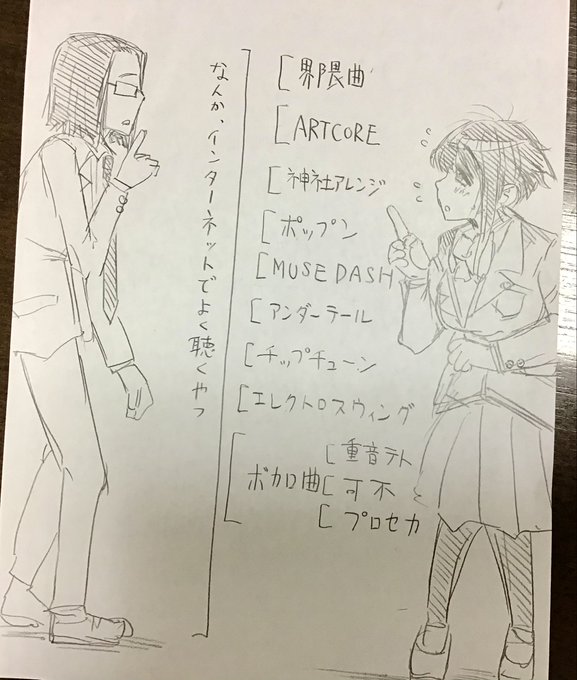 なんか、インターネットでよく聴くやつ
界隈曲
ARTCORE
神社アレンジ
ポップン
MUSE DASH
アンダーテール
チップチューン
エレクトロスウィング
ボカロ曲
重音テト
可不
プロセカ